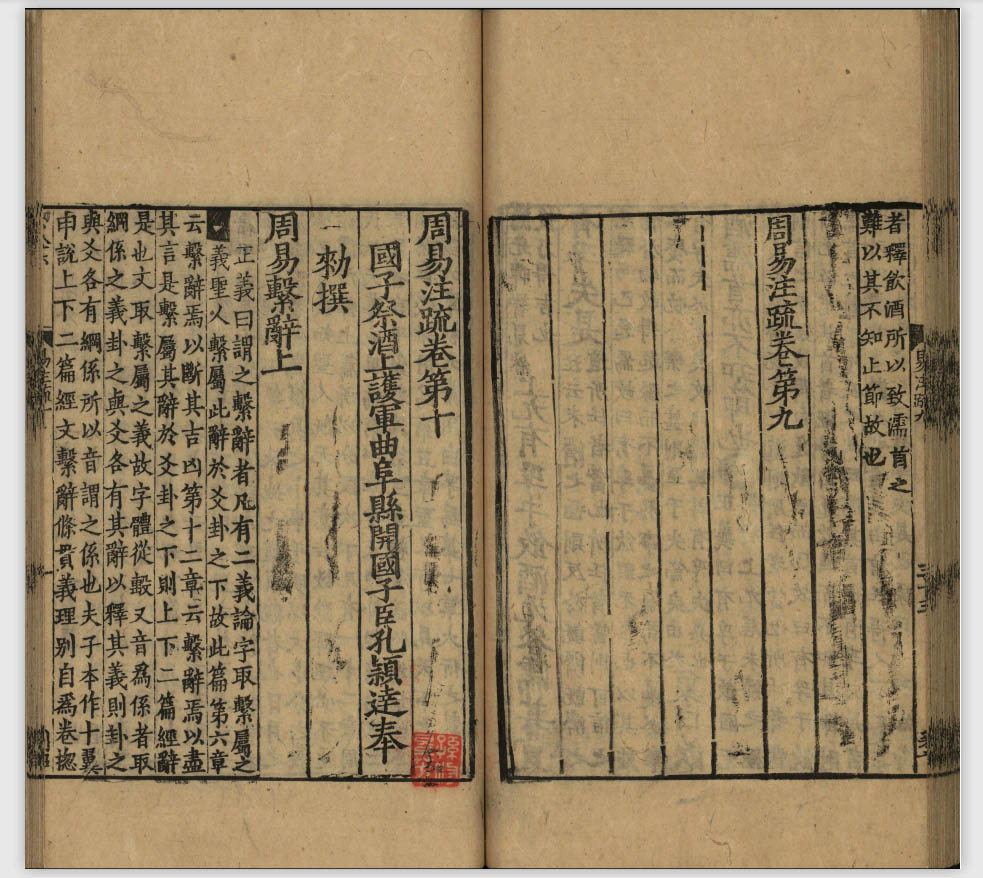 者釋飲酒所以致濡首之
難以其不知止節故也
周易注疏卷第九
易注疏九
周易注疏卷第十
國子祭酒上護軍曲阜縣開國子臣孔穎達奉
勑撰
周易繫辭上
正義曰謂之繫辭者凡有二義論字取繫屬之
義聖人繫屬此辭於爻卦之下故此篇第六章
云繫辭焉以斷其吉凶第十二章云繫辭焉以盡
其言是繫屬其辭於爻卦之下則上下二篇經辭
是也文取繫屬之義故字體從毄又音爲係者取
綱係之義卦之與爻各有其辭以釋其義則卦之
與爻各有綱係所以音謂之係也夫子本作十翼
申說上下二篇經文繫辭條貫義理別自爲卷揔
易注疏十